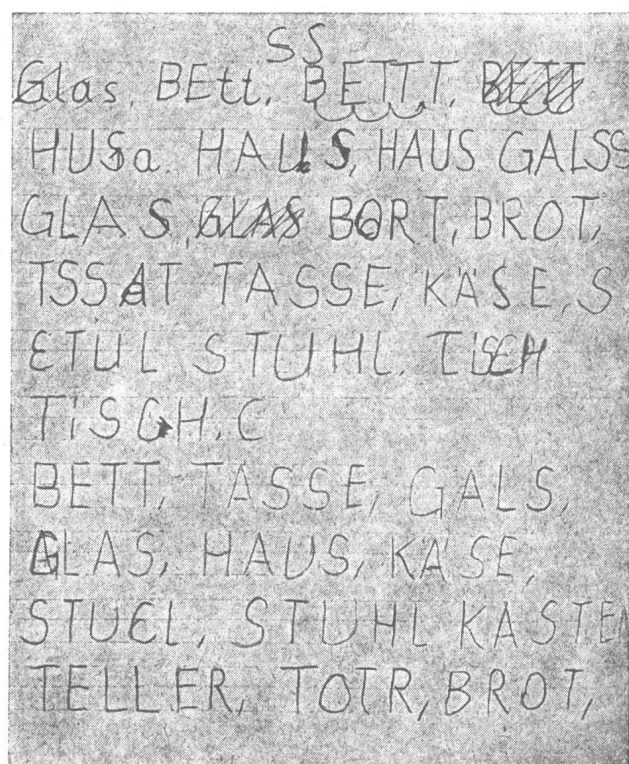 SS
Glas, BEtt, BETTT, BETT
HUSa. HAUS, HAUS GALSS
GLAS, GLAS BORT, BROT,
TSSAT TASSE, KÄSE, S
ETUL STUHL. TiSCH
TiSCH. C
BETT, TASSE, GALS,
GLAS, HAUS, KÄSE,
STUEL, STUHL KASTEN
TELLER, TOTR, BROT,